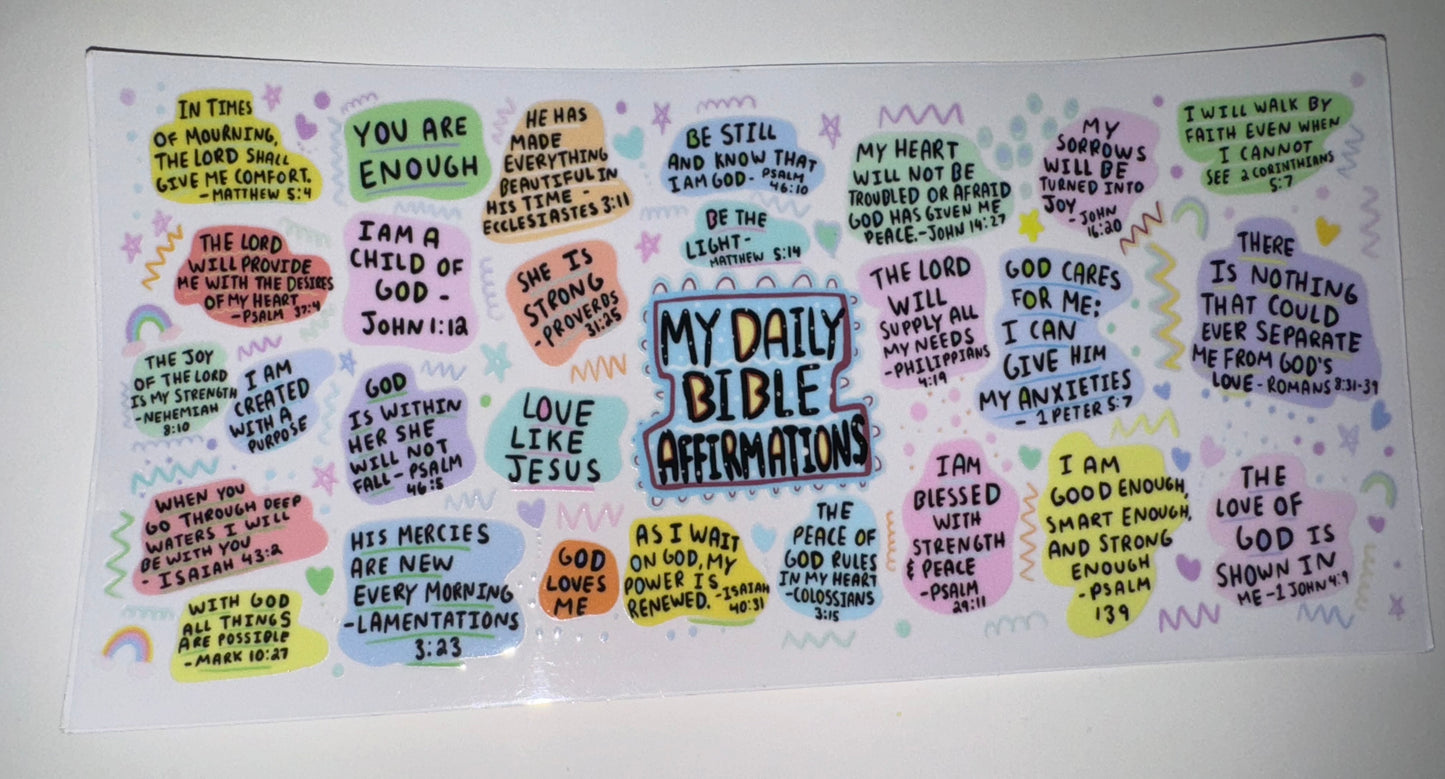 IN TIMES
OF MOURNING,
THE LORD SHALL
GIVE ME COMFORT.
- MATTHEW 5:4
YOU ARE
ENOUGH
HE HAS
MADE
EVERYTHING
BEAUTIFUL IN
HIS TIME -
ECCLESIASTES 3:11
BE STILL
AND KNOW THAT
I AM GOD - PSALM
46:10
MY HEART
WILL NOT BE
TROUBLED OR AFRAID
GOD HAS GIVEN ME
PEACE. - JOHN 14:27
MY
SORROWS
WILL BE
TURNED INTO
JOY - JOHN
16:20
I WILL WALK BY
FAITH EVEN WHEN
I CANNOT
SEE 2 CORINTHIANS
5:7
THE LORD
WILL PROVIDE
ME WITH THE DESIRES
OF MY HEART
- PSALM 37:4
I AM A
CHILD OF
GOD -
JOHN 1:12
SHE IS
STRONG
- PROVERBS
31:25
BE THE
LIGHT -
MATTHEW 5:14
MY DAILY
BIBLE
AFFIRMATIONS
THE LORD
WILL
SUPPLY ALL
MY NEEDS
- PHILIPPIANS
4:19
GOD CARES
FOR ME;
I CAN
GIVE HIM
MY ANXIETIES
- 1 PETER 5:7
THERE
IS NOTHING
THAT COULD
EVER SEPARATE
ME FROM GOD'S
LOVE - ROMANS 8:31-39
THE JOY
OF THE LORD
IS MY STRENGTH
- NEHEMIAH
8:10
I AM
CREATED
WITH A
PURPOSE
GOD
IS WITHIN
HER SHE
WILL NOT
FALL - PSALM
46:5
LOVE
LIKE
JESUS
WHEN YOU
GO THROUGH DEEP
WATERS I WILL
BE WITH YOU
- ISAIAH 43:2
HIS MERCIES
ARE NEW
EVERY MORNING
- LAMENTATIONS
3:23
GOD
LOVES
ME
AS I WAIT
ON GOD, MY
POWER IS
RENEWED. - ISAIAH
40:31
THE
PEACE OF
GOD RULES
IN MY HEART
- COLOSSIANS
3:15
I AM
BLESSED
WITH
STRENGTH
& PEACE
- PSALM
29:11
I AM
GOOD ENOUGH,
SMART ENOUGH,
AND STRONG
ENOUGH
- PSALM
139
THE
LOVE OF
GOD IS
SHOWN IN
ME - 1 JOHN 4:9
WITH GOD
ALL THINGS
ARE POSSIBLE
- MARK 10:27